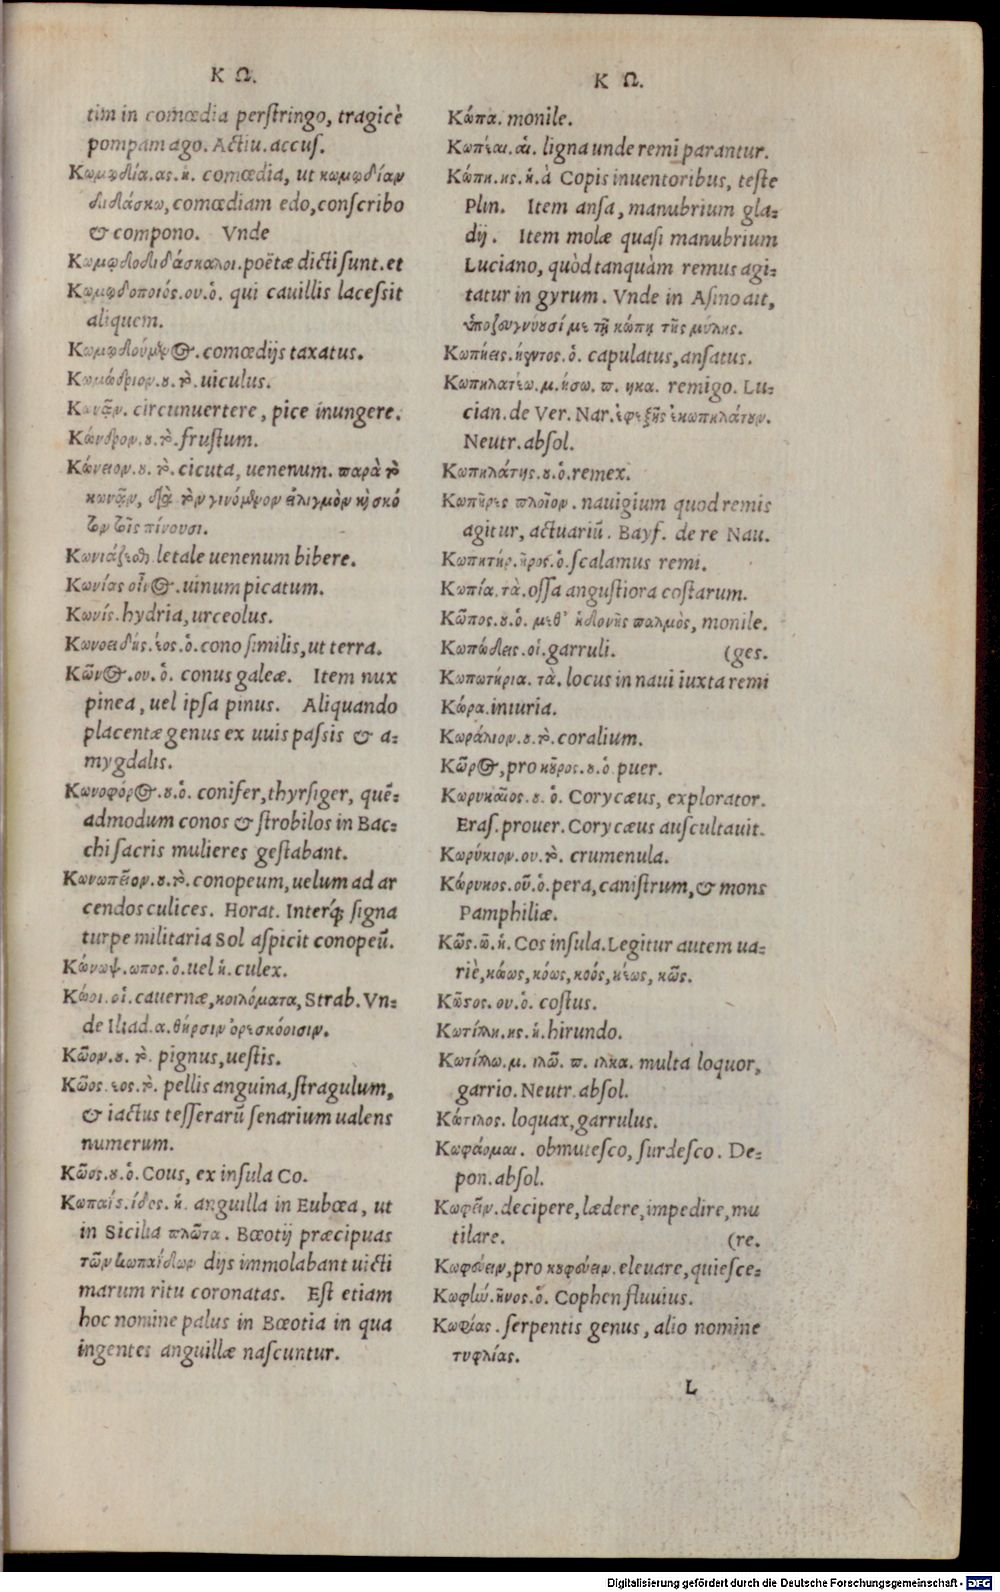 Κ Ω.
tim in comœdia perſtringo, tragicè
pompam ago. Actiu. accuſ.
Κωμῳδία.ας.ἡ. comœdia, ut κωμῳδίαν
διδάσκω, comœdiam edo, conſcribo
& compono. Vnde
Κωμῳδοδιδάσκαλοι. poëtæ dicti ſunt. et
Κωμῳδοποιός.ου.ὁ. qui cauillis laceſsit
aliquem.
Κωμῳδούμενος. comœdijs taxatus.
Κωμύδριον.ου.τὸ. uiculus.
Κωνᾷν. circunuertere, pice inungere.
Κώνδρον.ου.τὸ. fruſtum.
Κώνειον.ου.τὸ. cicuta, uenenum. παρὰ τὸ
κωνᾷν, διὰ τὸν γινόμενον εἰλιγμὸν καὶ σκό
τον τοῖς πίνουσι.
Κωνιάζεσθαι letale uenenum bibere.
Κωνίας οἶνος. uinum picatum.
Κωνίς. hydria, urceolus.
Κωνοειδής.έος.ὁ. cono ſimilis, ut terra.
Κῶνος.ου.ὁ. conus galeæ. Item nux
pinea, uel ipſa pinus. Aliquando
placentæ genus ex uuis paſsis & a-
mygdalis.
Κωνοφόρος.ου.ὁ. conifer, thyrſiger, quẽ-
admodum conos & ſtrobilos in Bac-
chi ſacris mulieres geſtabant.
Κωνωπεῖον.ου.τὸ. conopeum, uelum ad ar
cendos culices. Horat. Interq́; ſigna
turpe militaria Sol aſpicit conopeũ.
Κώνωψ.ωπος.ὁ. uel ἡ. culex.
Κώοι.οἱ. cauernæ, κοιλώματα, Strab. Vn-
de Iliad.α. θήρσιν ὀρεσκώοισιν.
Κῶον.ου.τὸ. pignus, ueſtis.
Κῶος.εος.τὸ. pellis anguina, ſtragulum,
& iactus teſſerarũ ſenarium ualens
numerum.
Κῶος.ου.ὁ. Cous, ex inſula Co.
Κωπαΐς.ίδος.ἡ. anguilla in Eubœa, ut
in Sicilia πλῶτα. Bœotij præcipuas
τῶν κωπαΐδων dijs immolabant uicti
marum ritu coronatas. Eſt etiam
hoc nomine palus in Bœotia in qua
ingentes anguillæ naſcuntur.
Κ Ω.
Κώπα. monile.
Κωπέαι.αἱ. ligna unde remi parantur.
Κώπη.ης.ἡ. à Copis inuentoribus, teſte
Plin. Item anſa, manubrium gla-
dij. Item molæ quaſi manubrium
Luciano, quòd tanquàm remus agi-
tatur in gyrum. Vnde in Aſino ait,
ὑποζευγνύουσί με τῇ κώπῃ τῆς μύλης.
Κωπήεις.ήεντος.ὁ. capulatus, anſatus.
Κωπηλατέω.μ.ήσω.π.ηκα. remigo. Lu-
cian. de Ver. Nar. ἐφεξῆς ἐκωπηλάτουν.
Neutr. abſol.
Κωπηλάτης.ου.ὁ. remex.
Κωπῆρες πλοῖον. nauigium quod remis
agitur, actuariũ. Bayf. de re Nau.
Κωπητήρ.ῆρος.ὁ. ſcalamus remi.
Κωπία.τὰ. oſſa anguſtiora coſtarum.
Κῶπος.ου.ὁ. μεθ᾽ ἡδονῆς παλμὸς, monile.
Κωπώδεις.οἱ. garruli. (ges.
Κωπωτήρια.τὰ. locus in naui iuxta remi
Κώρα. iniuria.
Κωράλιον.ου.τὸ. coralium.
Κῶρος, pro κοῦρος.ου.ὁ. puer.
Κωρυκαῖος.ου.ὁ. Corycæus, explorator.
Eraſ. prouer. Corycæus auſcultauit.
Κωρύκιον.ου.τὸ. crumenula.
Κώρυκος.οῦ.ὁ. pera, caniſtrum, & mons
Pamphiliæ.
Κῶς.ῶ.ἡ. Cos inſula. Legitur autem ua-
riè, κάως, κόως, κοός, κέως, κῶς.
Κῶστος.ου.ὁ. coſtus.
Κωτίλη.ης.ἡ. hirundo.
Κωτίλλω.μ.ιλῶ.π.ιλκα. multa loquor,
garrio. Neutr. abſol.
Κώτιλος. loquax, garrulus.
Κωφάομαι. obmuteſco, ſurdeſco. De-
pon. abſol.
Κωφεῖν. decipere, lædere, impedire, mu
tilare. (re.
Κωφεύειν, pro κουφεύειν. eleuare, quieſce-
Κωφὴν.ῆνος.ὁ. Cophen fluuius.
Κωφίας. ſerpentis genus, alio nomine
τυφλίας.
L
Digitalisierung gefördert durch die Deutsche Forschungsgemeinschaft - DFG